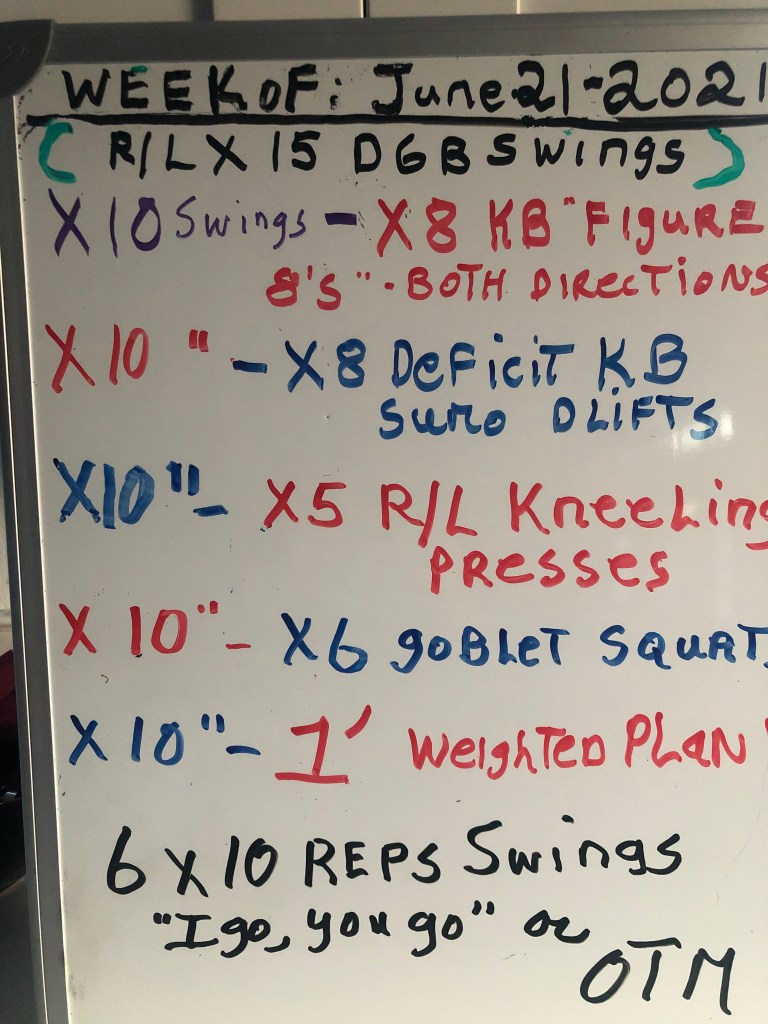 WEEK OF: June 21-2021
( R/L X 15 DGB Swings )
X 10 Swings - X8 KB "FIGURE
8's" - BOTH DIRECTIONS
X 10 " - X8 DeFiciT KB
SUMO DLIFTS
X10 " - X5 R/L KneeLing
PRESSES
X 10 " - X6 goBLET SQUAT
X 10 " - 1' WeighTED PLAN
6 X 10 REPS Swings
"I go, you go" or
OTM